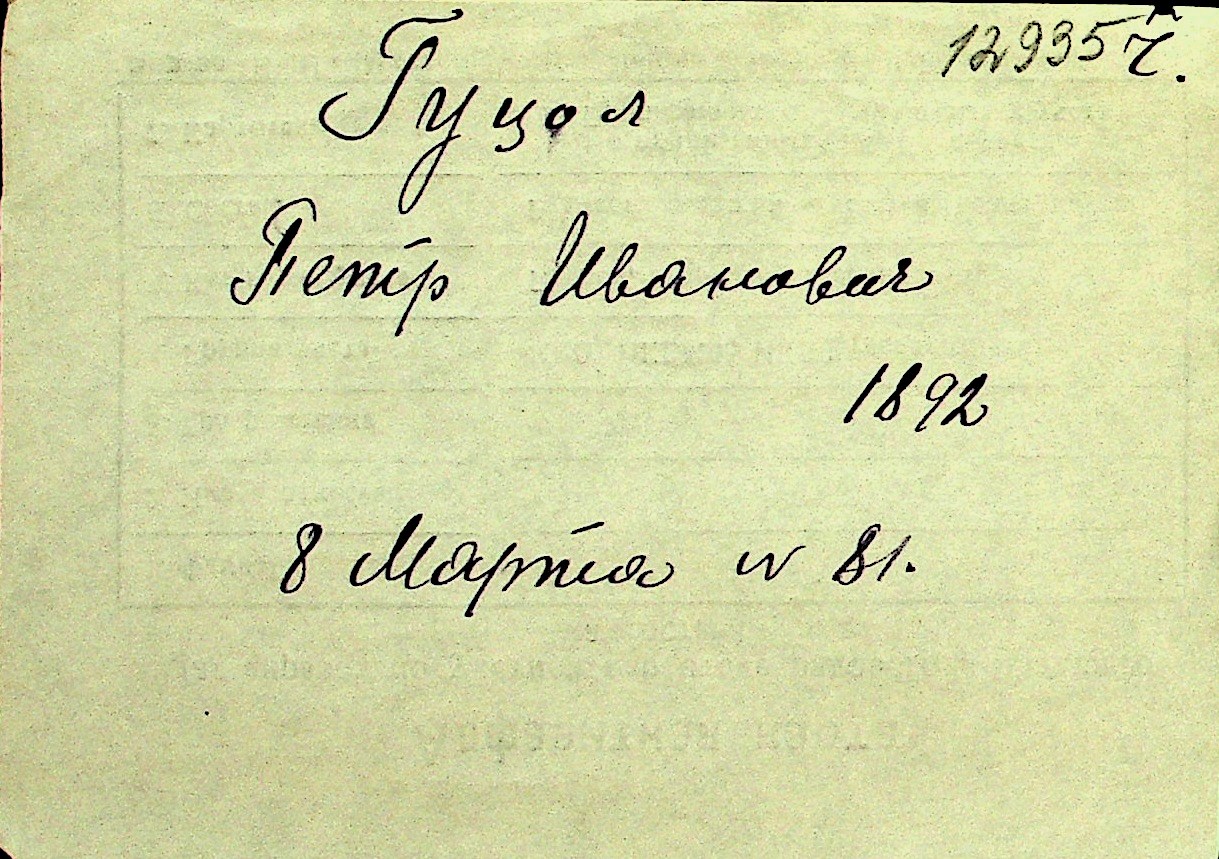 12935 ч.
Гуцол
Петр Иванович
1892
8 Марта № 81.